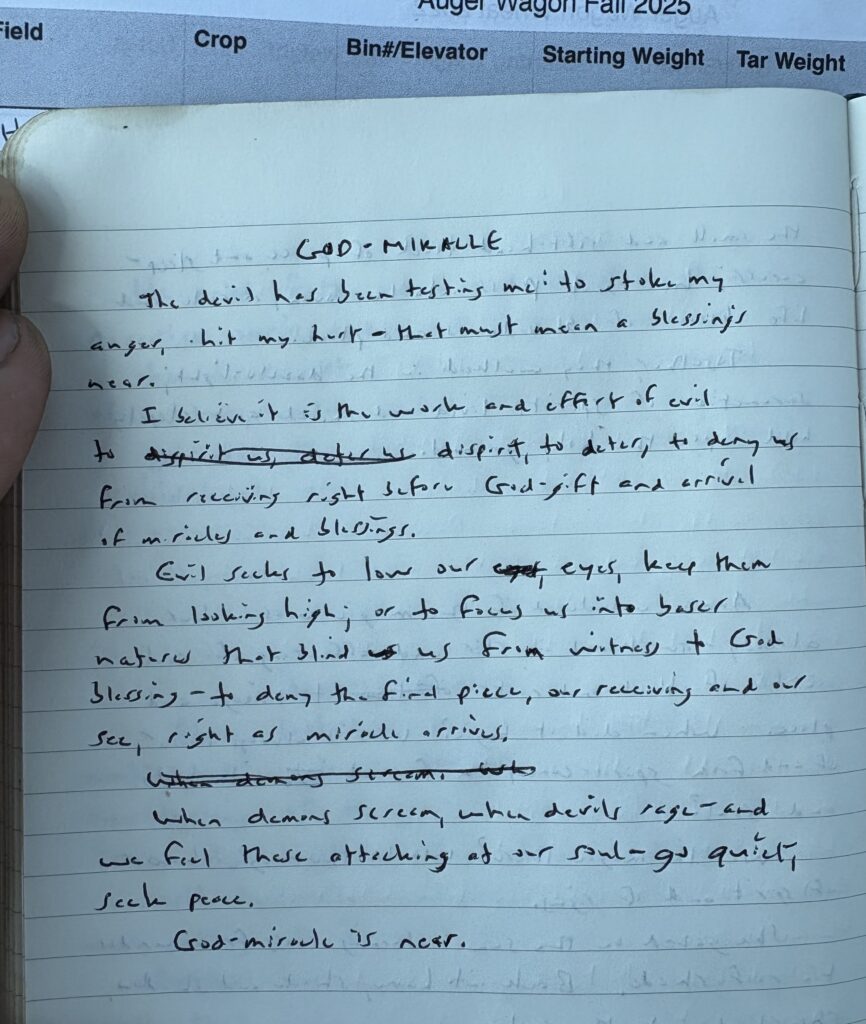 Auger Wagon Fall 2025
Field Crop Bin#/Elevator Starting Weight Tar Weight
GOD-MIRACLE
The devil has been testing me: to stoke my
anger, hit my hurt – that must mean a blessing's
near.
I believe it is the work and effort of evil
to dispirit us, deter us dispirit, to deter, to deny us
from receiving right before God-gift and arrival
of miracles and blessings.
Evil seeks to low our eyes, keep them
from looking high; or to focus us into baser
natures that blind us from witness to God
blessing – to deny the final piece, our receiving and our
see, right as miracle arrives.
When demons scream.
When demons scream, when devils rage – and
we feel these attacking at our soul – go quiet,
seek peace.
God-miracle is near.